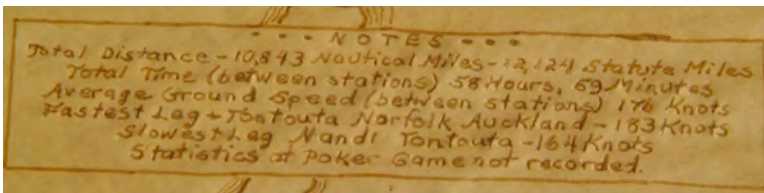 - - - NOTES - - -
Total Distance - 10,843 Nautical Miles - 12,124 Statute Miles
Total Time (between stations) 58 Hours, 59 Minutes
Average Ground Speed (between stations) 176 Knots
Fastest Lag - Tontouta Norfolk Auckland - 183 Knots
Slowest Leg Nandi Tontouta - 164 Knots
Statistics of Poker Game not recorded.